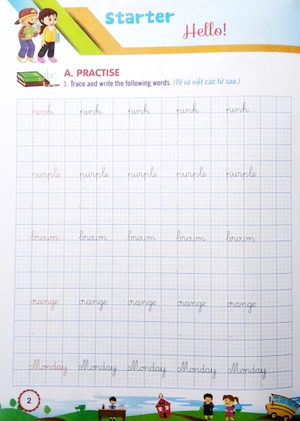 Starter
Hello!
A. PRACTISE
1. Trace and write the following words. (Tô và viết các từ sau.)
pink pink pink pink pink
purple purple purple purple purple
brown brown brown brown brown
orange orange orange orange orange
Monday Monday Monday Monday Monday
2